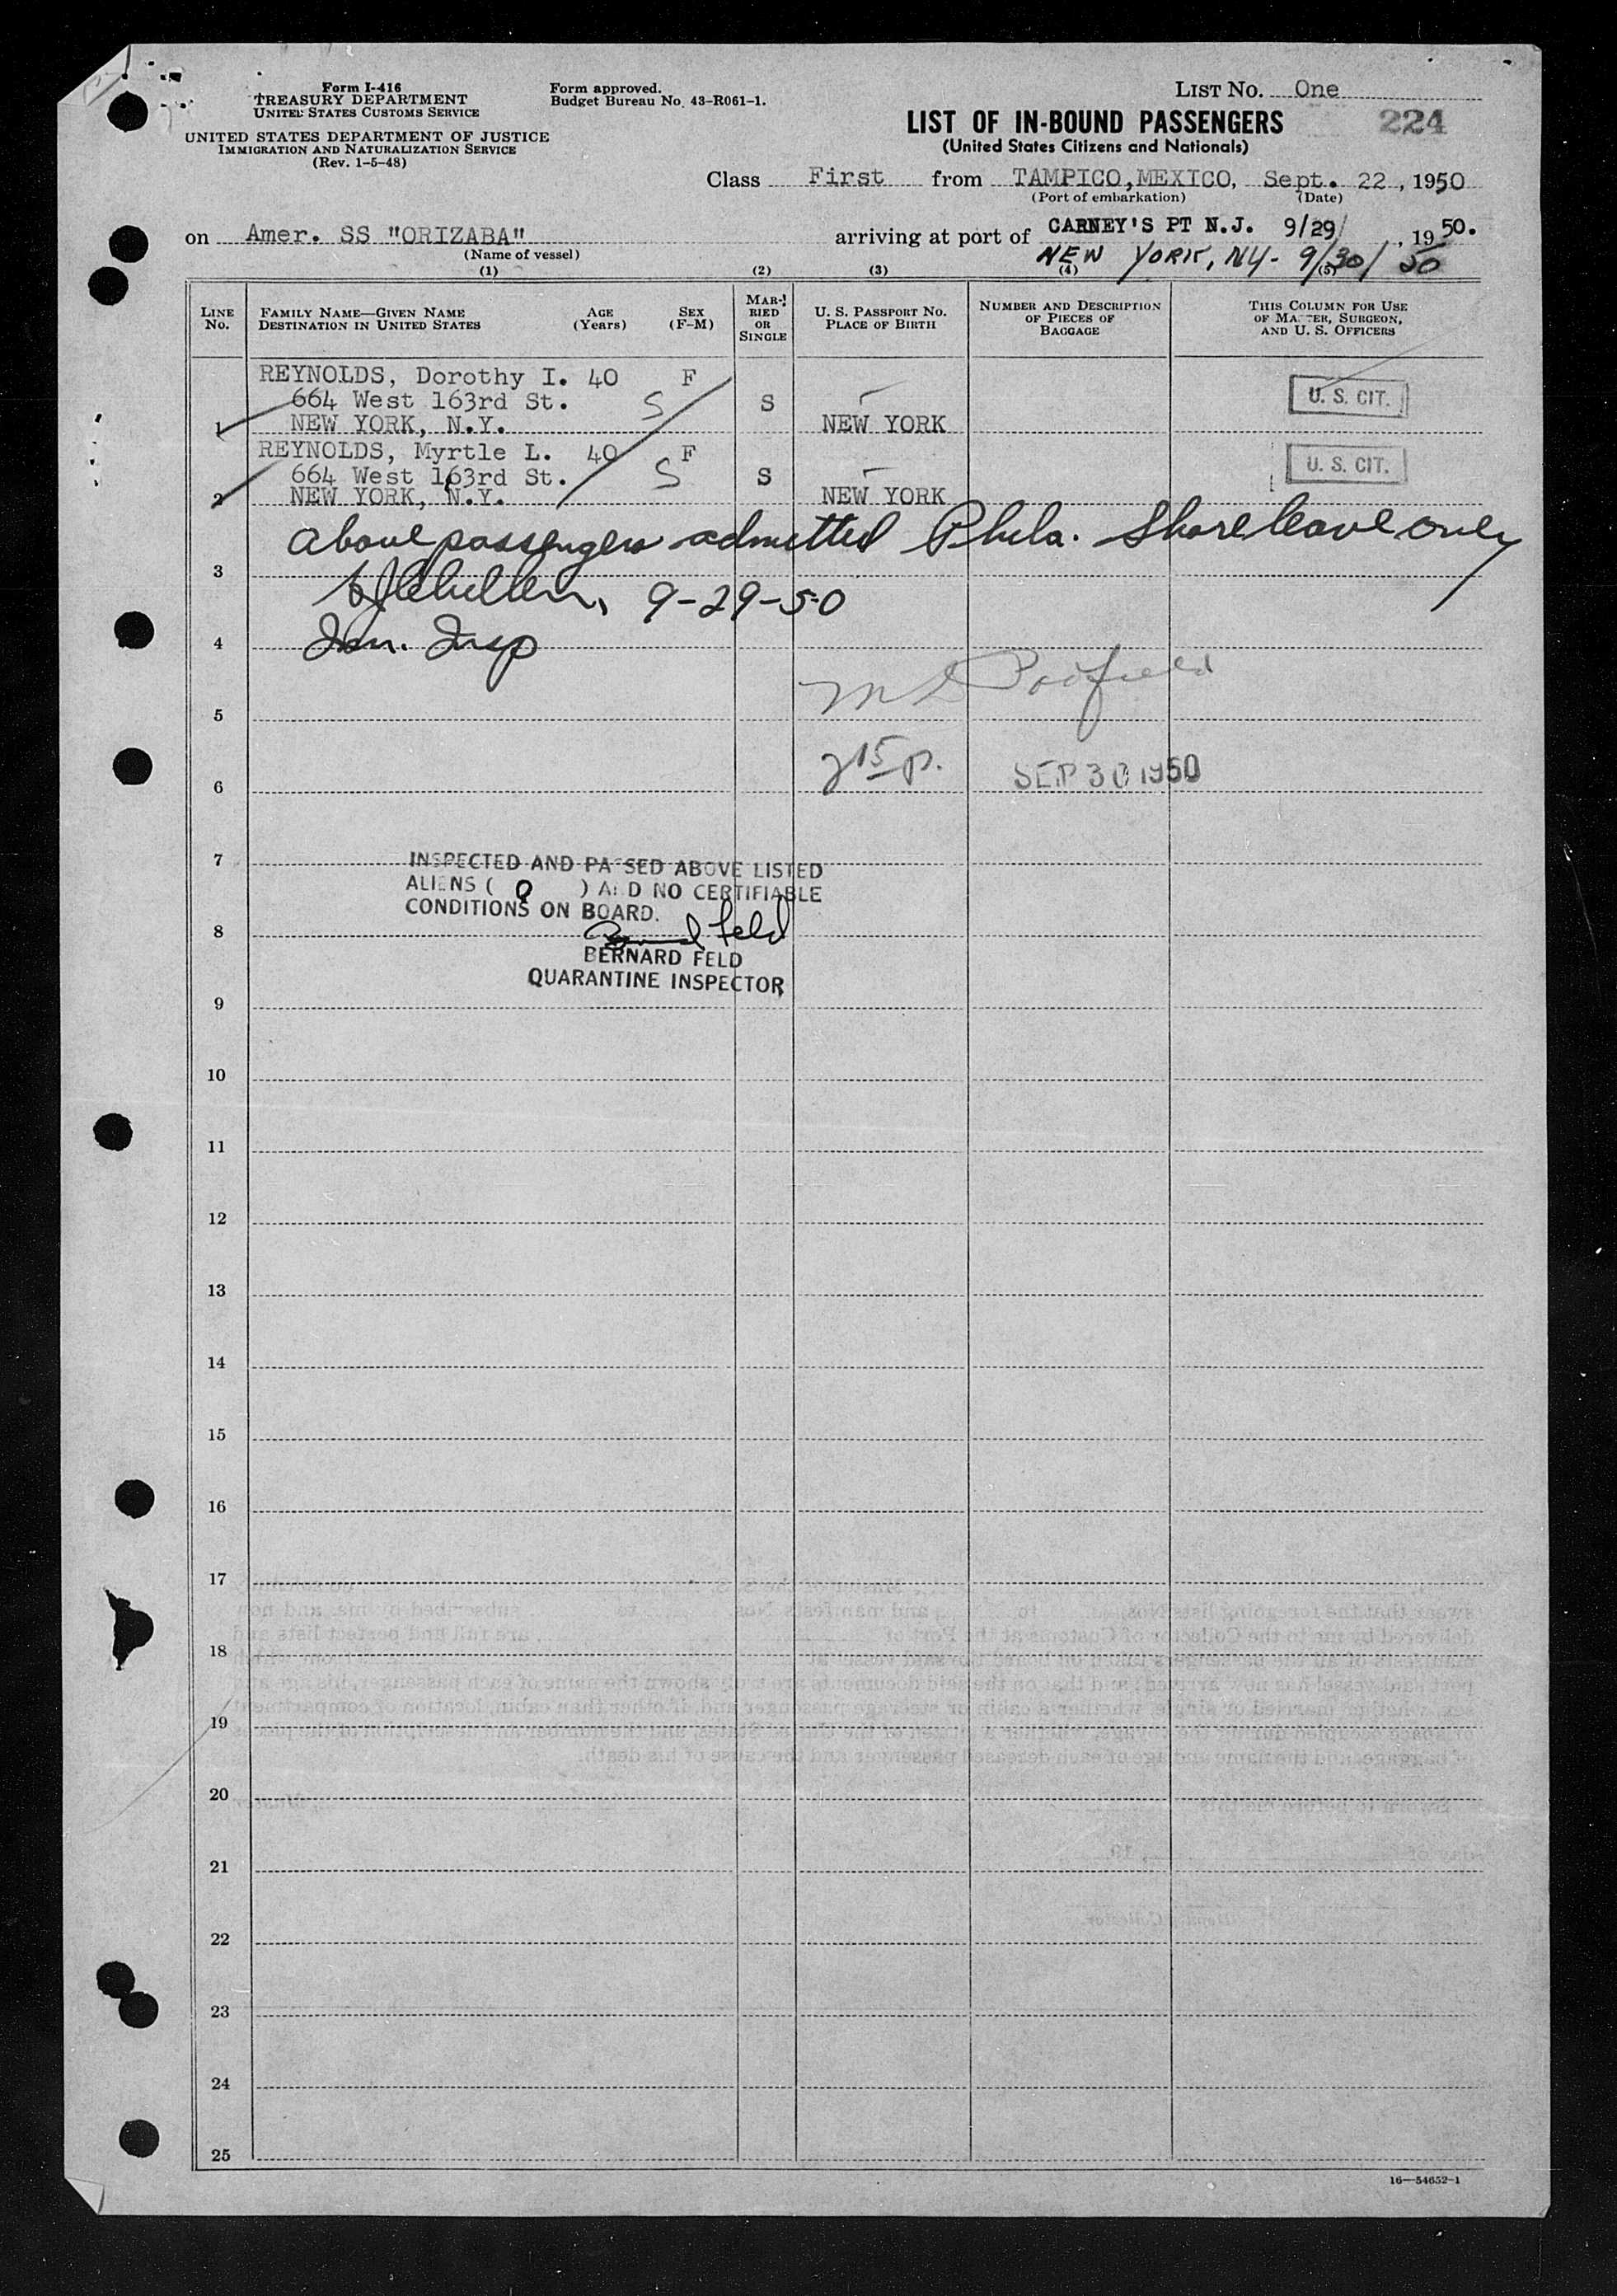 Form I-416
TREASURY DEPARTMENT
UNITED STATES CUSTOMS SERVICE
UNITED STATES DEPARTMENT OF JUSTICE
IMMIGRATION AND NATURALIZATION SERVICE
(Rev. 1-5-48)
Form approved.
Budget Bureau No. 43-R061-1.
LIST No. One
LIST OF IN-BOUND PASSENGERS 224
(United States Citizens and Nationals)
Class First from TAMPICO, MEXICO, Sept. 22, 1950
(Port of embarkation) (Date)
on Amer. SS "ORIZABA" arriving at port of CARNEY'S PT N.J. 9/29/, 1950.
(Name of vessel)
NEW YORK, NY- 9/30/50
(1) (2) (3) (4) (5)
LINE No. FAMILY NAME—GIVEN NAME DESTINATION IN UNITED STATES AGE (Years) SEX (F-M) MARRIED OR SINGLE U. S. PASSPORT NO. PLACE OF BIRTH NUMBER AND DESCRIPTION OF PIECES OF BAGGAGE THIS COLUMN FOR USE OF MASTER, SURGEON, AND U. S. OFFICERS
REYNOLDS, Dorothy I. 40 F
664 West 163rd St. S S — U. S. CIT.
1 NEW YORK, N.Y. NEW YORK
REYNOLDS, Myrtle L. 40 F
664 West 163rd St. S S — U. S. CIT.
2 NEW YORK, N.Y. NEW YORK
Above passengers admitted Phila. Shore leave only
3
9-29-50
4 Imm. Insp
5
6 215p. SEP 30 1950
7
INSPECTED AND PASSED ABOVE LISTED
ALIENS ( 0 ) AND NO CERTIFIABLE
CONDITIONS ON BOARD.
8 Bernard Feld
BERNARD FELD
QUARANTINE INSPECTOR
9
10
11
12
13
14
15
16
17
18
19
20
21
22
23
24
25
16—54652-1